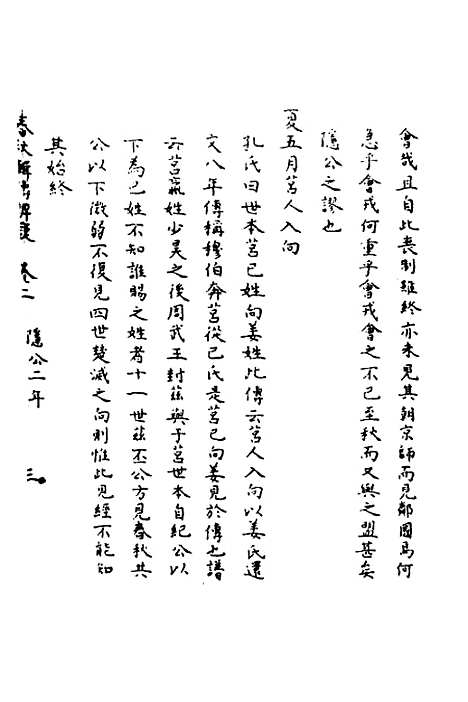 會戎且自此喪制雖終亦未見其朝京師而見鄰國焉何
急乎會戎何重乎會戎會之不已至秋而又與之盟甚矣
隱公之謬也
夏五月莒人入向
孔氏曰世本莒已姓向姜姓此傳云莒人入向以姜氏還
文八年傳稱穆伯奔莒從已氏是莒已向姜見於傳也譜
云莒嬴姓少昊之後周武王封茲與于莒世本自紀公以
下為已姓不知誰賜之姓者十一世茲丕公方見春秋共
公以下微弱不復見四世楚滅之向則惟此見經不能知
其始終
春秋 卷二 隱公二年 三